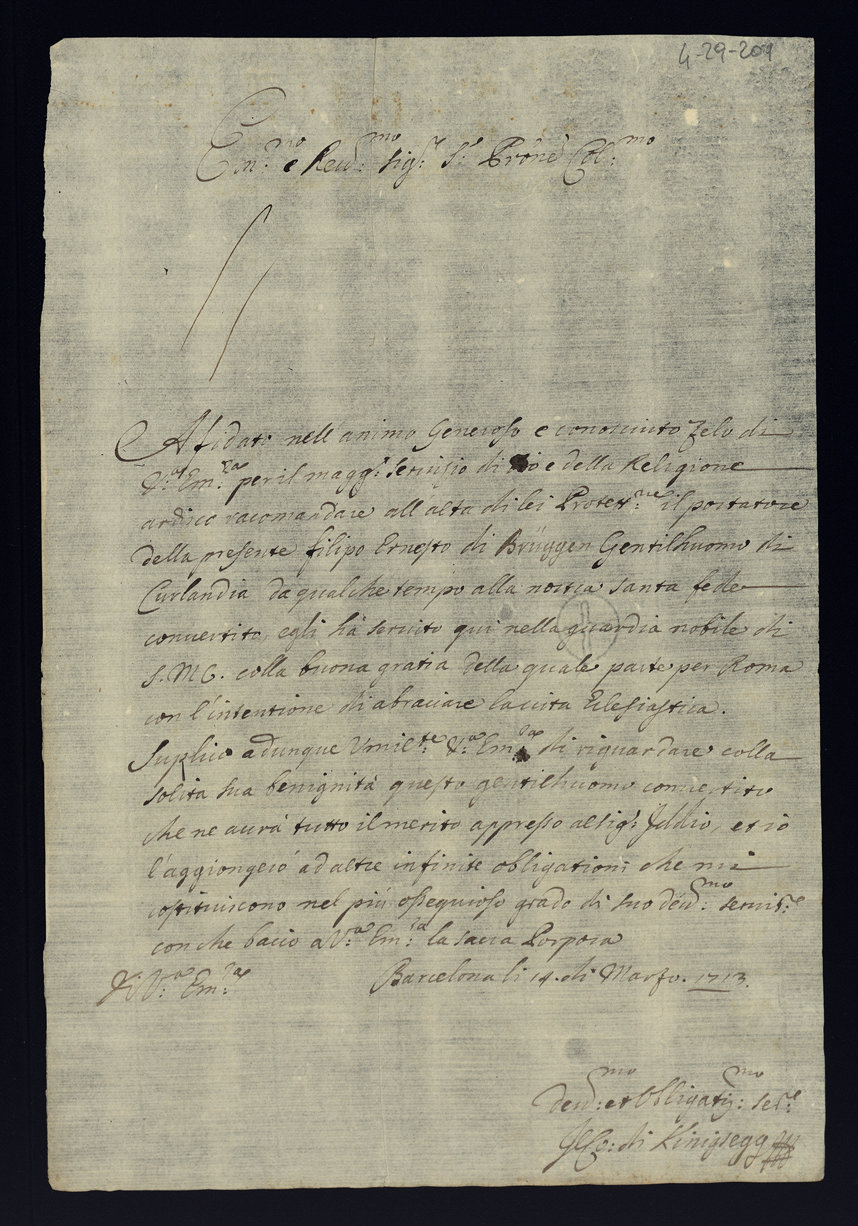 4-29-209
Em.mo e Reu.mo Sig.r S.r Prõne Col.mo
Afidato nell'animo Generoso e conosciuto zelo di
V.a Em.za per il magg.r seruisio di Dio e della Religione
ardisco racomandare all'alta di lei Protett.ne il portatore
della presente filipo Ernesto di Brüggen Gentilhuomo di
Curlandia da qualche tempo alla nostra santa fede
conuertito, egli hà seruito qui nella guardia nobile di
S.M.C. colla buona gratia della quale parte per Roma
con l'intentione di abraciare la uita Eclesiastica.
Suplico adunque Vmil.te V.a Em.za di riguardare colla
solita sua benignità questo gentilhuomo conuertito
che ne aurà tutto il merito appresso al sig.r Iddio, et io
l'aggiongerò ad altre infinite obligationi che mi
costituiscono nel più ossequioso grado di suo deu.mo seruit.e
con che bacio a V.a Em.za la sacra Porpora
Di V.a Em.za Barcelona li 14. di Marzo. 1713.
deu.mo et obligatis.mo se.re
di Kinigsegg